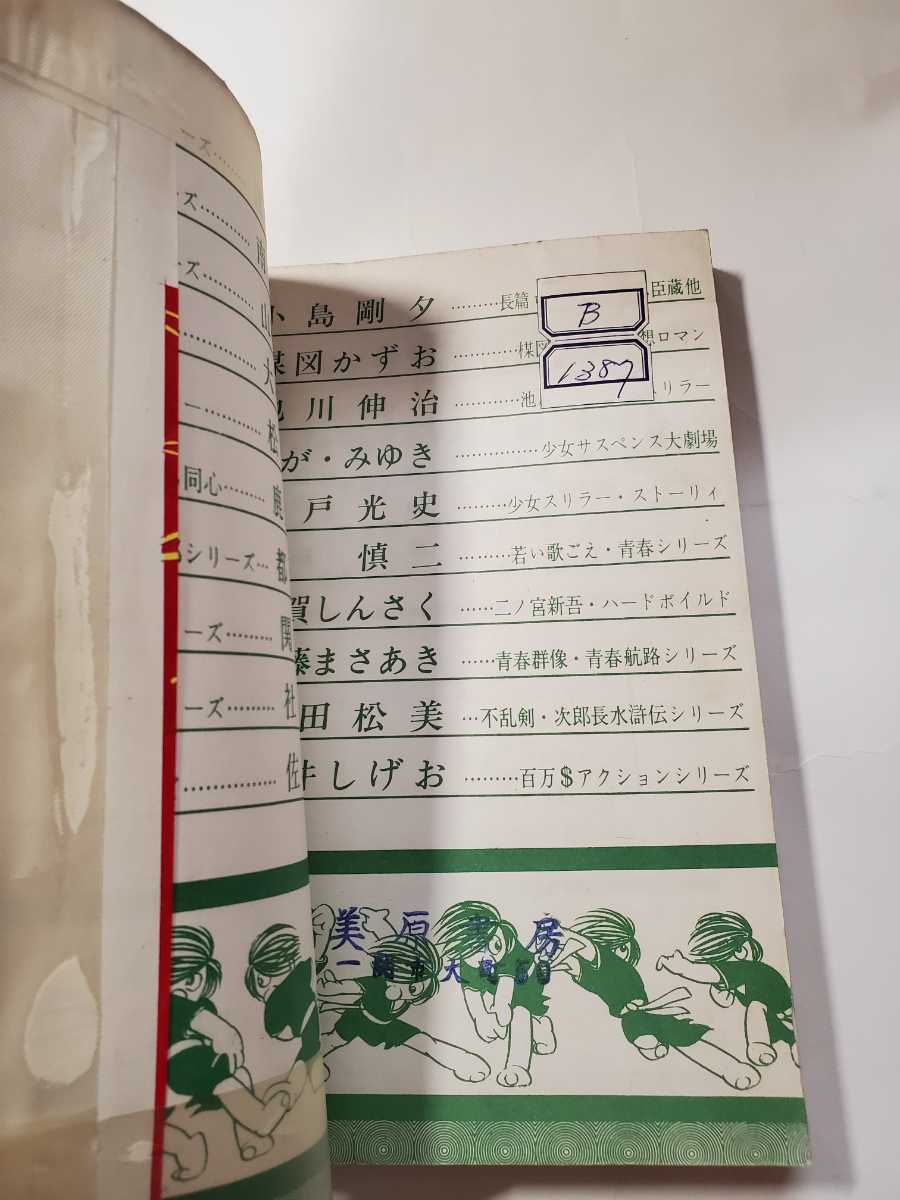 ーズ………
ーズ………
ーズ………
同心………
シリーズ…
ーズ………
ーズ………
小島剛夕………長篇 臣蔵他
楳図かずお…………楳図 想ロマン
川伸治…………池 リラー
が・みゆき……………少女サスペンス大劇場
戸光史………少女スリラー・ストーリィ
慎二………若い歌ごえ・青春シリーズ
賀しんさく……二ノ宮新吾・ハードボイルド
まさあき……青春群像・青春航路シリーズ
田松美…不乱剣・次郎長水滸伝シリーズ
井しげお………百万$アクションシリーズ
B
1387
美原書房
一関市大町50